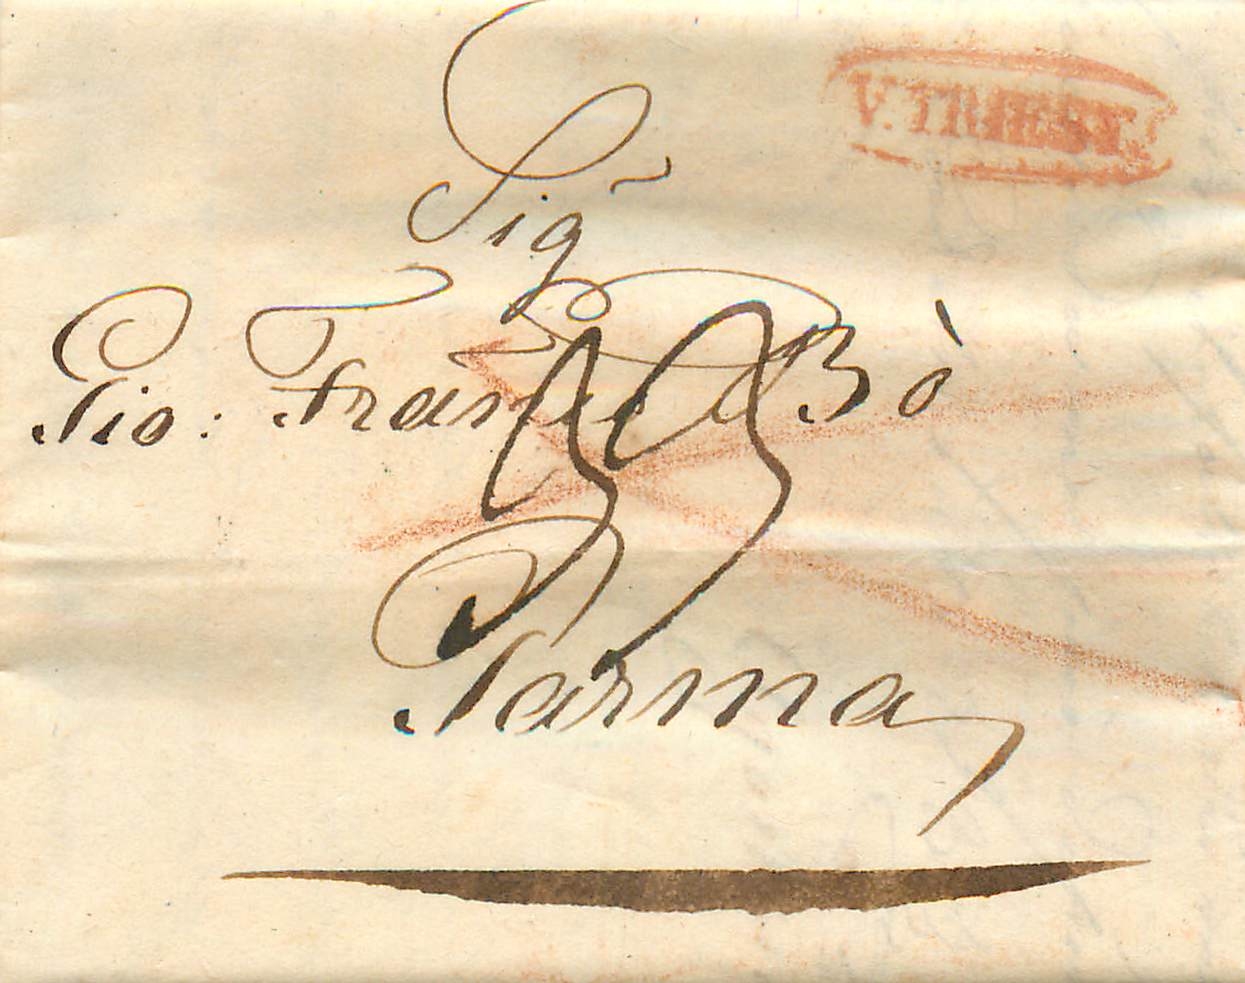 V. TRIEST.
Sig.r
Gio: Franc.o Bò
33
Parma